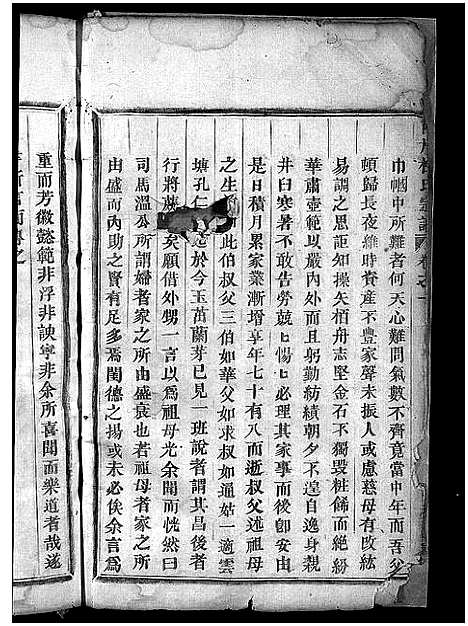 巾幗中所難者何天心難問氣數不齊竟當中年而吾父
頓歸長夜維時資產不豐家聲未振人或慮慈母有改絃
易調之思詎知操矢栢舟志堅金石不獨毀粧餙而絶紛
華肅壼範以嚴內外而且躬勤紡績朝夕不遑自逸身親
井臼寒暑不敢告勞兢ヒ惕ヒ必理其家事而後卽安由
是日積月累家業漸增享年七十有八而逝叔父述祖母
之生 此伯叔父三伯如華父如求叔如通姑一適雲
塘孔仁 於今玉苗蘭芽已見一班說者謂其昌後者
行將蔟 矣願借外甥一言以爲祖母光余聞而恍然曰
司馬溫公所謂婦者家之所由盛衰也若祖母者家之所
由盛而內助之賢有足多焉閨德之揚或未必俟余言爲
重而芳徽懿範非浮非諛寧非余所喜聞而樂道者哉遂